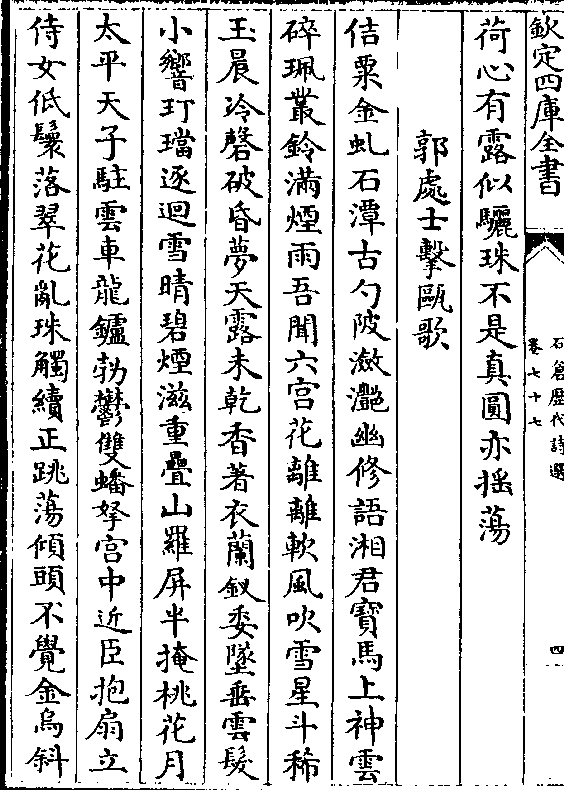 欽定四庫全書
石倉歷代詩選
卷七十七
四
荷心有露似驪珠不是真圓亦摇蕩
郭處士擊甌歌
佶栗金虬石潭古勺陂瀲灧幽修語湘君寶馬上神雲
碎珮叢鈴滿煙雨吾聞六宫花離離軟風吹雪星斗稀
玉晨冷磬破昏夢天露未乾香著衣蘭釵委墜垂雲髮
小響玎璫逐迴雪晴碧煙滋重疊山羅屏半掩桃花月
太平天子駐雲車龍鑪勃鬱雙蟠拏宫中近臣抱扇立
侍女低鬟落翠花亂珠觸續正跳蕩傾頭不覺金烏斜